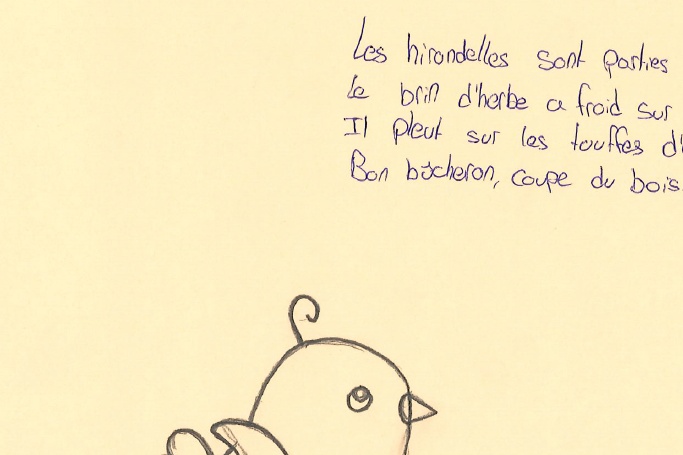 Les hirondelles sont parties
Le brin d'herbe a froid sur
Il pleut sur les touffes d'
Bon bûcheron, coupe du bois